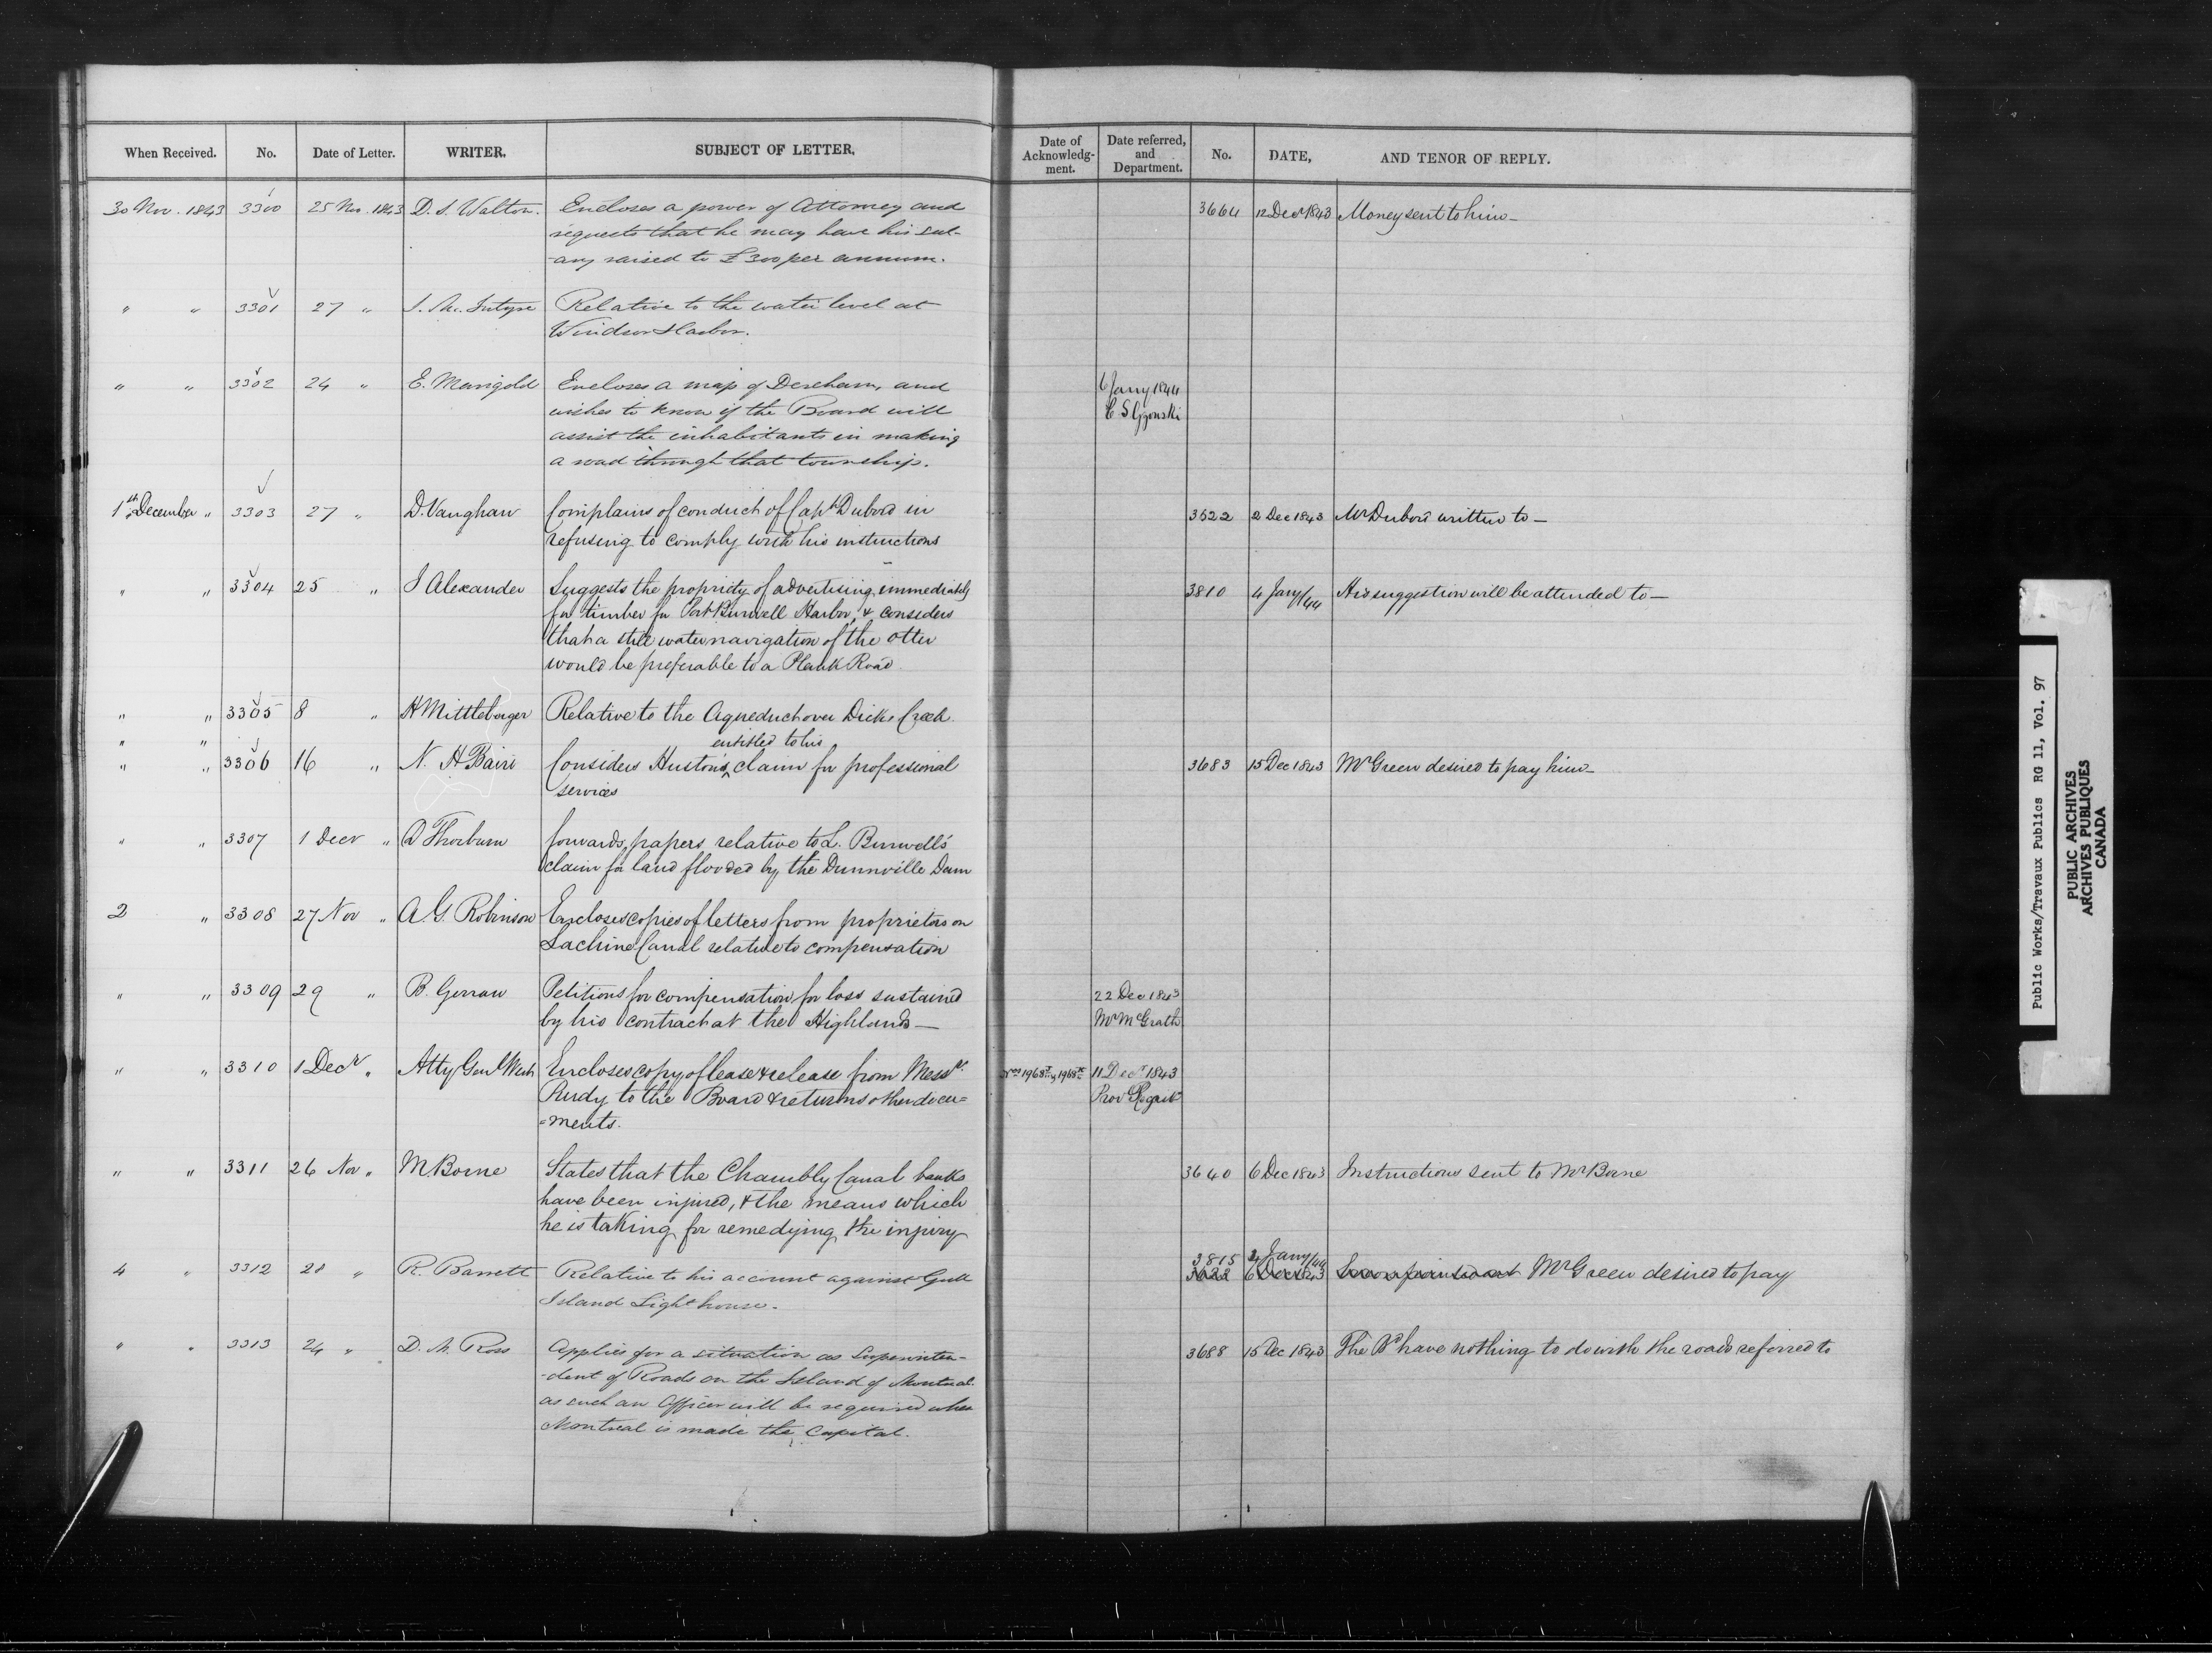 When Received. No. Date of Letter. WRITER. SUBJECT OF LETTER.
Date of Acknowledg-ment. Date referred, and Department. No. DATE, AND TENOR OF REPLY.
30 Nov. 1843 3300 25 Nov. 1843 D. S. Walton. Encloses a power of Attorney and 3664 12 Decr 1843 Money sent to him—
requests that he may have his sal-
-ary raised to £300 per annum.
" " 3301 27 " J. Mc. Intyre Relative to the water level at
Windsor Harbor.
" " 3302 24 " E. Marigold Encloses a map of Dereham, and 6 Jany 1844
wishes to know if the Board will C S Gzowski
assist the inhabitants in making
a road through that township.
1st December " 3303 27 " D. Vaughan Complains of conduct of Capt Dubord in 3522 2 Dec 1843 Mr Dubord written to—
refusing to comply with his instructions
" " 3304 25 " J Alexander Suggests the propriety of advertising immediately 3810 4 Jany/44 His suggestion will be attended to—
for timber for Port Burwell Harbor, & considers
that a still water navigation of the Otter
would be preferable to a Plank Road
" " 3305 8 " H Mittleberger Relative to the Aqueduct over Dicks Creek.
" " entitled to his
" " 3306 16 " N. H Baird Considers Huston's claim for professional 3683 15 Dec 1843 Mr Green desired to pay him—
services
" " 3307 1 Decr " D Thorburn forwards papers relative to L. Burwell's
claim for land flooded by the Dunnville Dam
2 " 3308 27 Nov " A. G. Robinson Encloses copies of letters from proprietors on
Lachine Canal relative to compensation
" " 3309 29 " B. Gerrau Petitions for compensation for loss sustained 22 Dec 1843
by his contract at the Highlands— Mr McGrath
" " 3310 1 Decr " Atty Genl West Encloses copy of lease & release from Messrs 11 Decr 1843
Rudy to the Board & returns other docu= Prov Regist
=ments.
" " 3311 26 Nov " M. Borne States that the Chambly Canal banks 3640 6 Dec 1843 Instructions sent to Mr Borne
have been injured, & the means which
he is taking for remedying the injury
3815 4 Jany/44
4 " 3312 28 " R. Barrett Relative to his account against Gull 6 Dec 1843 Mr Green desired to pay
Island Light house.
" " 3313 24 " D. M. Ross Applies for a situation as Superinten- 3688 15 Dec 1843 The Bd have nothing to do with the roads referred to
-dent of Roads on the Island of Montreal
as such an Officer will be required when
Montreal is made the Capital.
Public Works/Travaux Publics RG 11, Vol. 97
PUBLIC ARCHIVES
ARCHIVES PUBLIQUES
CANADA